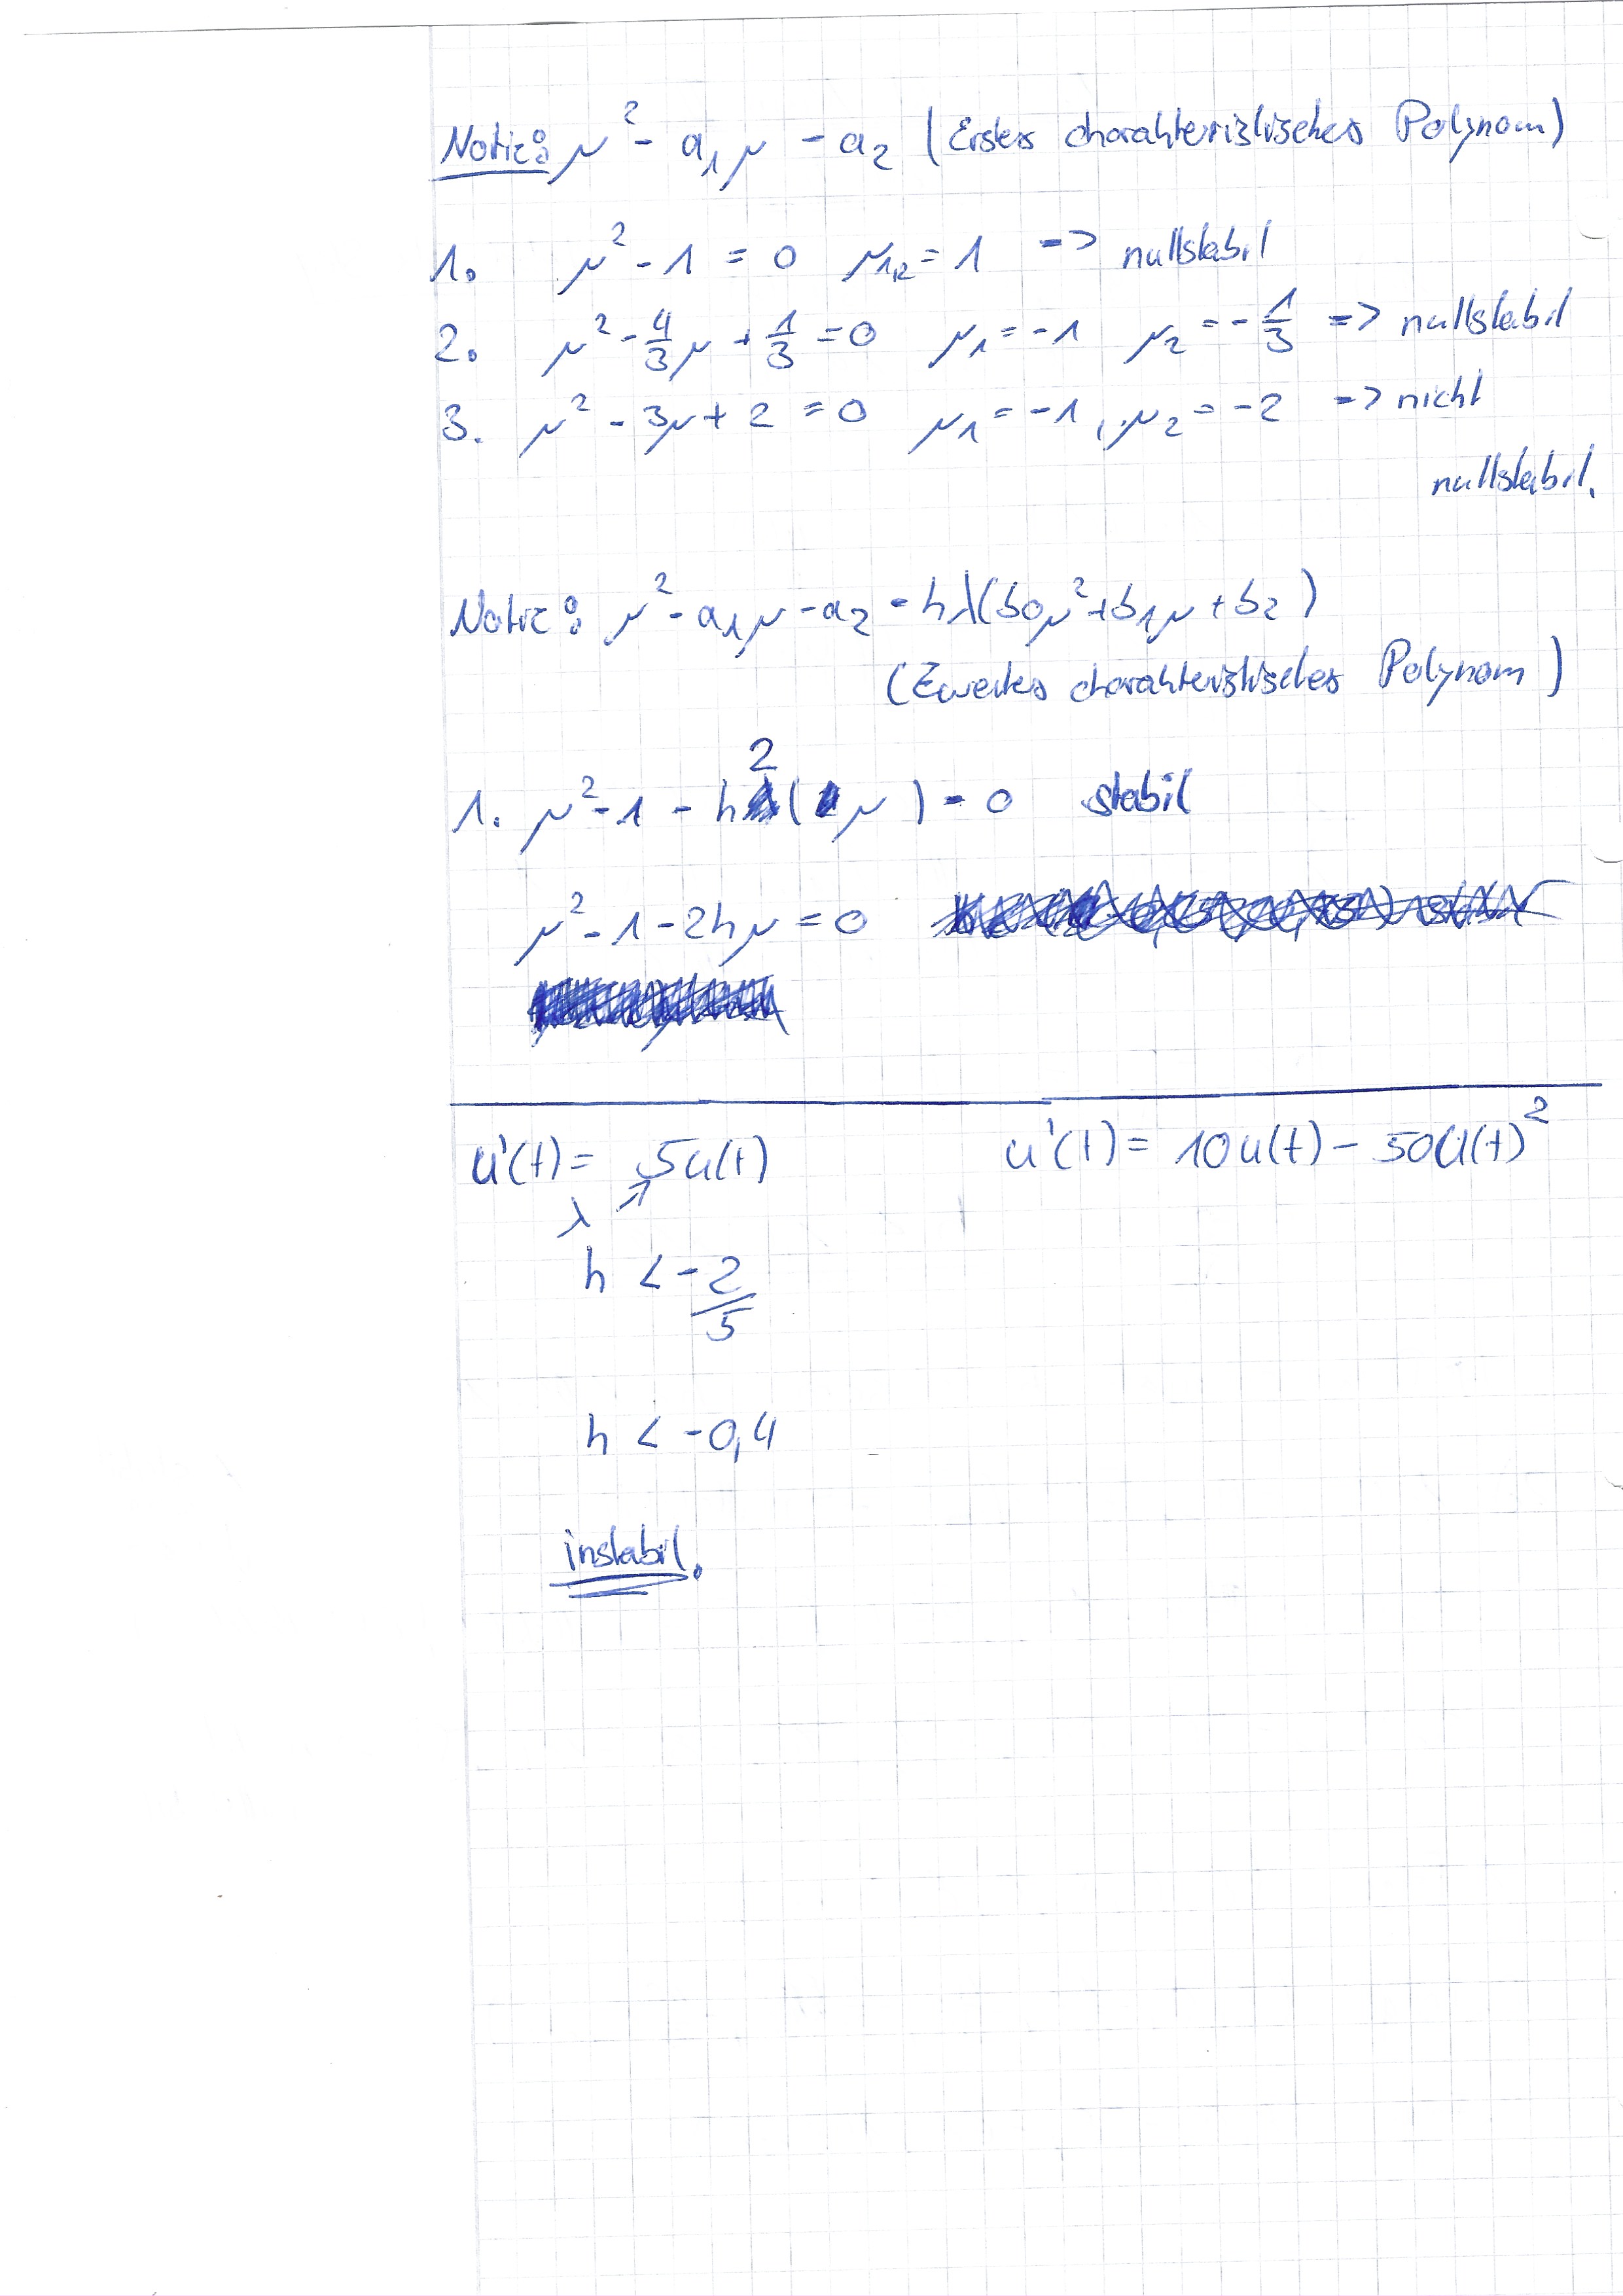 Notiz: μ² - a₁μ - a₂ (Erstes charakteristisches Polynom)
1. μ² - 1 = 0 μ₁,₂ = 1 => nullstabil
2. μ² - 4/3 μ + 1/3 = 0 μ₁ = -1 μ₂ = - 1/3 => nullstabil
3. μ² - 3μ + 2 = 0 μ₁ = -1, μ₂ = -2 => nicht
nullstabil.
Notiz: μ² - a₁μ - a₂ - hλ(b₀μ² + b₁μ + b₂)
(Zweites charakteristisches Polynom)
1. μ² - 1 - h2(μ) = 0 stabil
μ² - 1 - 2hμ = 0
u'(t) = 5u(t) u'(t) = 10u(t) - 50u(t)²
λ ↗
h < -2/5
h < -0,4
instabil.